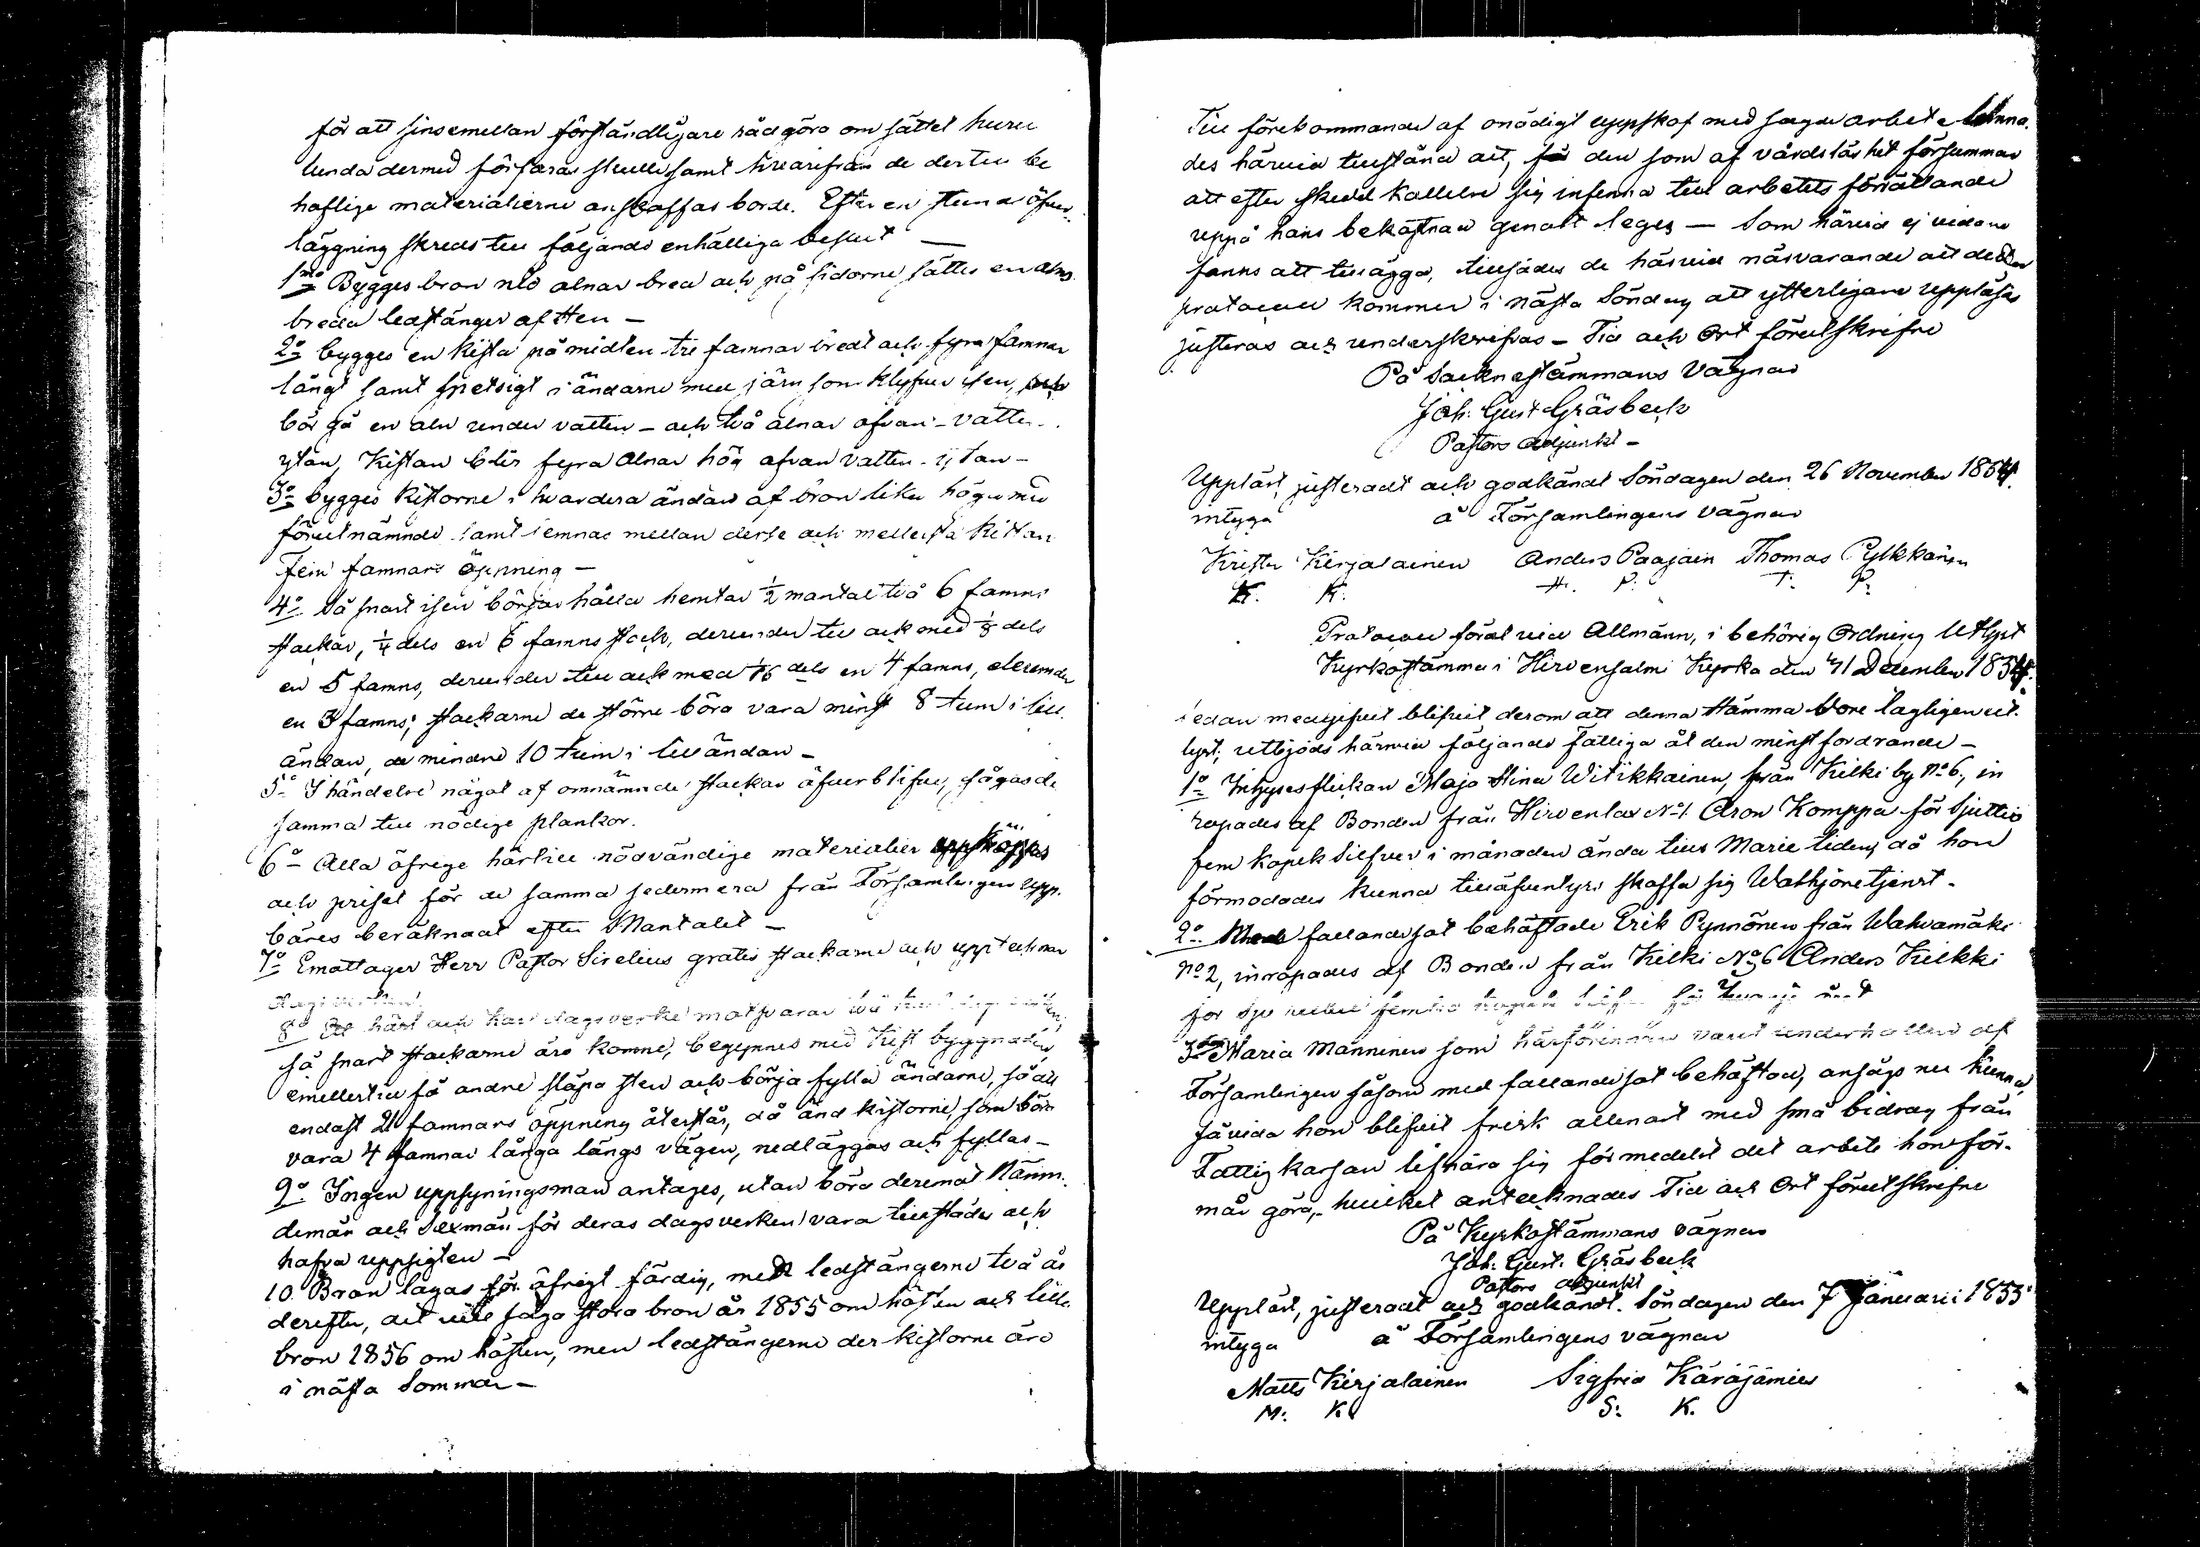 för att sinsemellan förståndligare rådgöra om sättet huru
lunda dermed förfaras skulle samt hvarifrån de dertill be
höflige materialierne anskaffas borde. Efter en stunds öfver
läggning skreds till följande enhälliga beslut —
1mo Bygges bron nio alnar bred och på sidorne sättes en alns
breda ledstänger af sten —
2o bygges en kista på midten tre famnar bredt och fyra famnar
långt samt spetsigt i ändarne med järn som klyfver isen, och
bör gå en aln under vatten – och två alnar ofvan – vatten
ytan, Kistan blir fyra alnar hög ofvan vatten-ytan –
3o bygges kistorne i hvardera ändan af bron lika höga med
förutnämnde samt lemnas mellan desse och mellersta kistan
fem famnars öppning —
4o Så snart isen börjar hålla hemtar ½ mantal två 6 famns
stockar, ¼ dels en 6 famns stock, derunder till och med ⅛ dels
en 5 famns, derunder till och med 1/16 dels en 4 famns, derunder
en 3 famns; stockarne de större böra vara minst 8 tum i lill
ändan, de mindre 10 tum i lilländan –
5o I händelse något af omnämnde stockar öfverblifver, sågas de
samma till nödige plankor.
6o Alla öfrige härtill nödvändige materialier uppköpes
och priset för de samma sedermera från Församlingen upp
bäres beräknadt efter Mantalet —
7o Emottager Herr Pastor Sirelius gratis stockarne och upptecknar
8o häst och karl dagsverke motsvarar två
så snart stockarne äro komne, begynnes med kist byggnaden
emellertid få andre släpa sten och börja fylla ändarne, så att
endast 21 famnars öppning återstår, då änd kistorne, som böra
vara 4 famnar långa längs vägen, nedläggas och fyllas –
9o Ingen uppsyningsman antages, utan böra deremot Nämn
demän och Sexmän för deras dagsverken vara tillstädes och
hafva uppsigten —
10 Bron lagas för öfrigt färdig, med ledstängerne två år
derefter, att vill säga stora bron år 1855 om hösten och lilla
bron 1856 om hösten, men ledstängerne der kistorne äro
i nästa Sommar —
Till förekommande af onödigt uppskof med sagde arbete
des härvid tillstånd att, den som af vårdslöshet försummar
att efter skedd kallelse sig infinna till arbetets förrättande
uppå hans bekostnad genast leges — Som härvid ej vidare
fanns att tillägga, tillsades de härvid närvarande att detta
protocoll kommer i nästa Söndag att ytterligare uppläsas
justeras och underskrifvas – Tid och Ort förutskrifne
På Sockne stämmans vägnar
Joh. Gust Gräsbeck
Pastors adjunkt –
Uppläst, justeradt och godkändt Söndagen den 26 November 1854.
intyga å Församlingens vägnar
Krister Kirjalainen Anders Paajain Thomas Pylkkänen
K. K. A. P. T. P.
Protocoll fördt vid Allmänn, i behörig Ordning Utlyst
Kyrkostämma i Hirvensalmi Kyrka den 31 December 1854.
sedan medgifvit blifvit derom att denna stämma vore lagligen ut
lyst; utbjöds härvid följande fattiga åt den minst fordrande –
1o Inhyses flickan Maja Stina Witikkainen, från Kilki by No 6, in
ropades af Bonden från Hirvenlax No 1 Aron Komppa för Sjuttio
fem kopek Silfver i månaden ända till Marie tiden, då hon
förmodades kunna till äfventyrs skaffa sig Wathjonetjenst –
2o Med fallandesot behäftade Erik Pynnönen från Wahvamäki
No 2, inropades af Bonden från Kilki No 6 Anders Kilkki
för sju rubel femtio kopek
3o Maria Manninen som härförinnan varit underhållen af
Församlingen såsom med fallandesot behäftad, ansågs nu kunna
såvida hon blifvit frisk allenast med små bidrag från
Fattig kassan lifnära sig förmedelst det arbete hon för-
mår göra, hvilket antecknades Tid och Ort förutskrifne
På Kyrkostämmans vägnar
Joh. Gust. Gräsbeck
Pastors adjunkt
Uppläst, justeradt och godkändt. Söndagen den 7 Januarii 1855
intyga å Församlingens vägnar
Matts Kirjalainen Sigfrid Käräjämies
M: K. S: K.